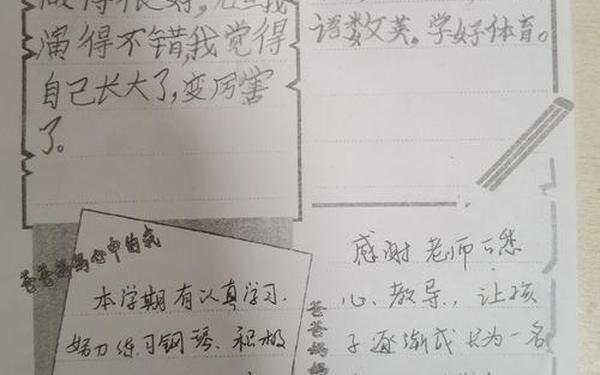 做得很好,
演得不错,我觉得
自己长大了,变厉害
了。
语数英,学好体育。
爸爸妈妈心中的我
本学期有认真学习.
努力练习钢琴、积极
爸爸妈妈
感谢老师
心、教导,让孩
子逐渐成长为一名